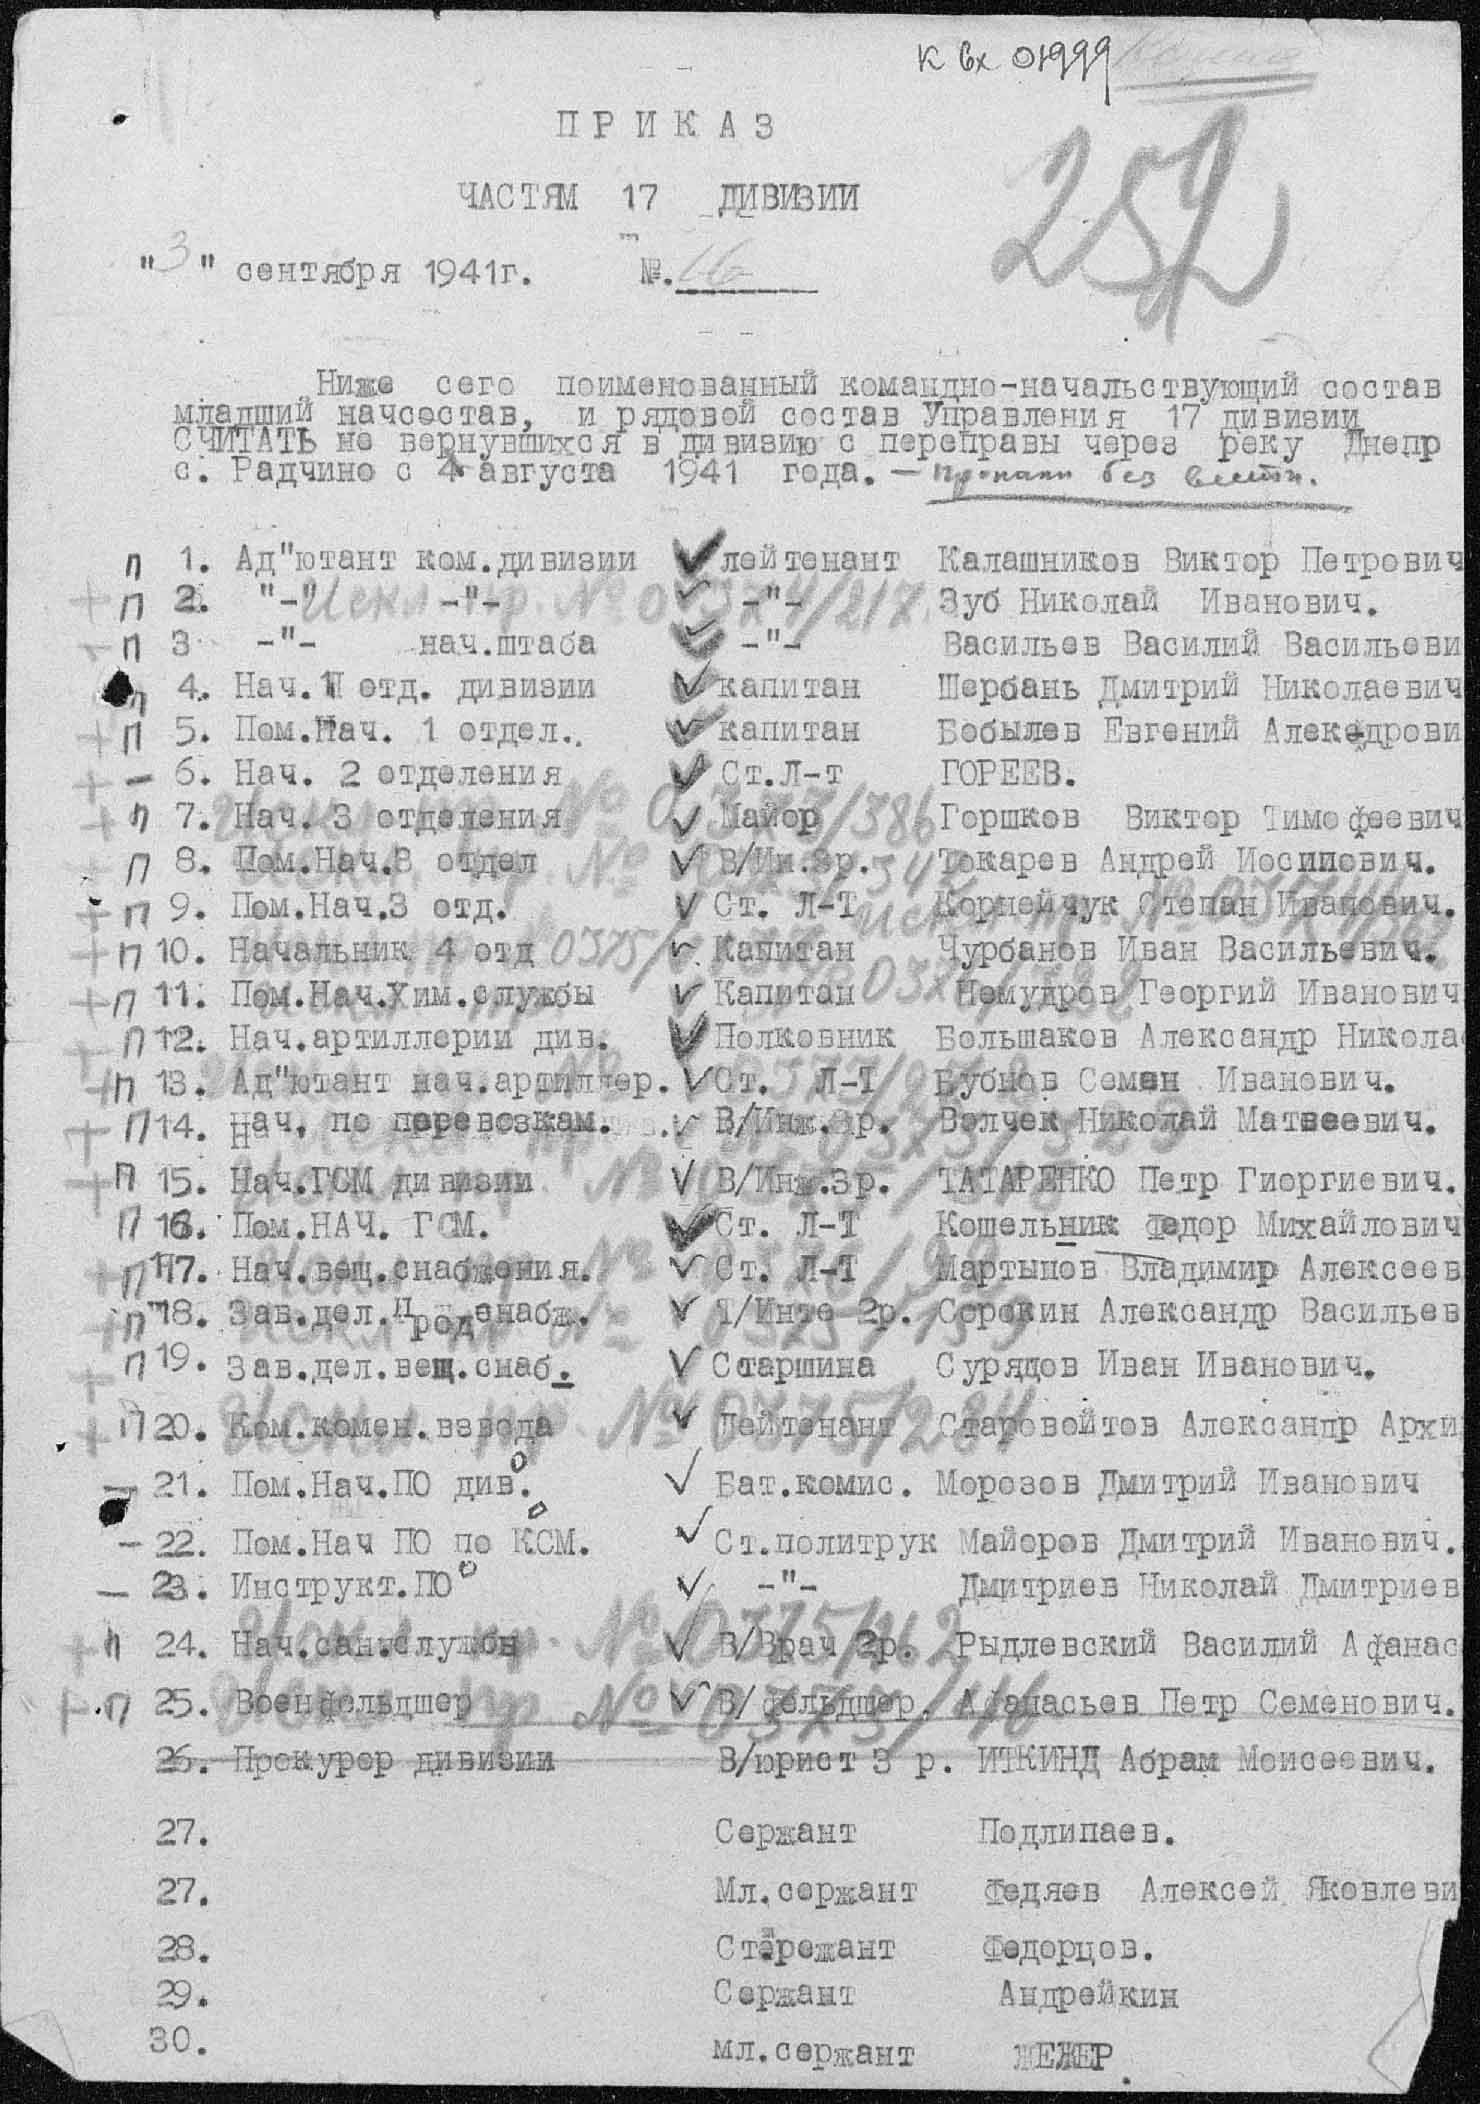 К вх 01999
ПРИКАЗ
ЧАСТЯМ 17 ДИВИЗИИ
252
"3" сентября 1941г. №. 16
Ниже сего поименованный командно-начальствующий состав
младший начсостав, и рядовой состав Управления 17 дивизии
СЧИТАТЬ не вернувшихся в дивизию с переправы через реку Днепр
с. Радчино с 4 августа 1941 года. - пропали без вести.
п 1. Ад"ютант ком.дивизии лейтенант Калашников Виктор Петрович
+ п 2. "-" -"- -"- Зуб Николай Иванович.
Искл. пр. №
- п 3 -"- нач.штаба -"- Васильев Василий Васильеви
п 4. Нач.1 отд. дивизии капитан Шербань Дмитрий Николаевич
+ п 5. Пом.Нач. 1 отдел. капитан Бобылев Евгений Алек дрови
+ - 6. Нач. 2 отделения Ст.Л-т ГОРЕЕВ.
+ п 7. Нач. 3 отделения Майор Горшков Виктор Тимофеевич
+ п 8. Пом.Нач.8 отдел В/Ин.3р. Токарев Андрей Иосипович.
+ п 9. Пом.Нач.3 отд. Ст. Л-Т Корнейчук Степан Иванович.
+ п 10. Начальник 4 отд Капитан Чурбанов Иван Васильевич.
+ п 11. Пом.Нач.Хим.службы Капитан Немудров Георгий Иванович
п 12. Нач.артиллерии див. Полковник Большаков Александр Никола
+ п 13. Ад"ютант нач.артиллер. Ст. Л-Т Бубнов Семен Иванович.
+ п 14. Нач. по перевозкам. В/Инж.3р. Волчек Николай Матвеевич.
+ п 15. Нач.ГСМ дивизии В/Инж.3р. ТАТАРЕНКО Петр Гиоргиевич.
п 16. Пом.НАЧ. ГСМ. Ст. Л-Т Кошельник Федор Михайлович
+ п 17. Нач.вещ.снабжения. Ст. Л-Т Мартынов Владимир Алексеев
+ п 18. Зав.дел.прод снабж. Т/Инте 2р. Сорокин Александр Васильев
+ п 19. Зав.дел.вещ.снаб. Старшина Сурядов Иван Иванович.
+ п 20. Ком.комен.взвода Лейтенант Старовойтов Александр Архи
Искл. пр. № 0375/284
- 21. Пом.Нач.ПО див. Бат.комис. Морозов Дмитрий Иванович
- 22. Пом.Нач ПО по КСМ. Ст.политрук Майоров Дмитрий Иванович.
- 23. Инструкт.ПО -"- Дмитриев Николай Дмитриев
+ п 24. Нач.сан.службы В/Врач 2р. Рыдлевский Василий Афанас
Искл. пр. № 0375/262
+ п 25. Военфельдшер В/фельдшер. Афанасьев Петр Семенович.
26. Прокурор дивизии В/юрист 3 р. ИТКИНД Абрам Моисеевич.
27. Сержант Подлипаев.
27. Мл.сержант Федяев Алексей Яковлеви
28. Федорцов.
29. Сержант Андрейкин
30. мл.сержант ЖЕЖЕР